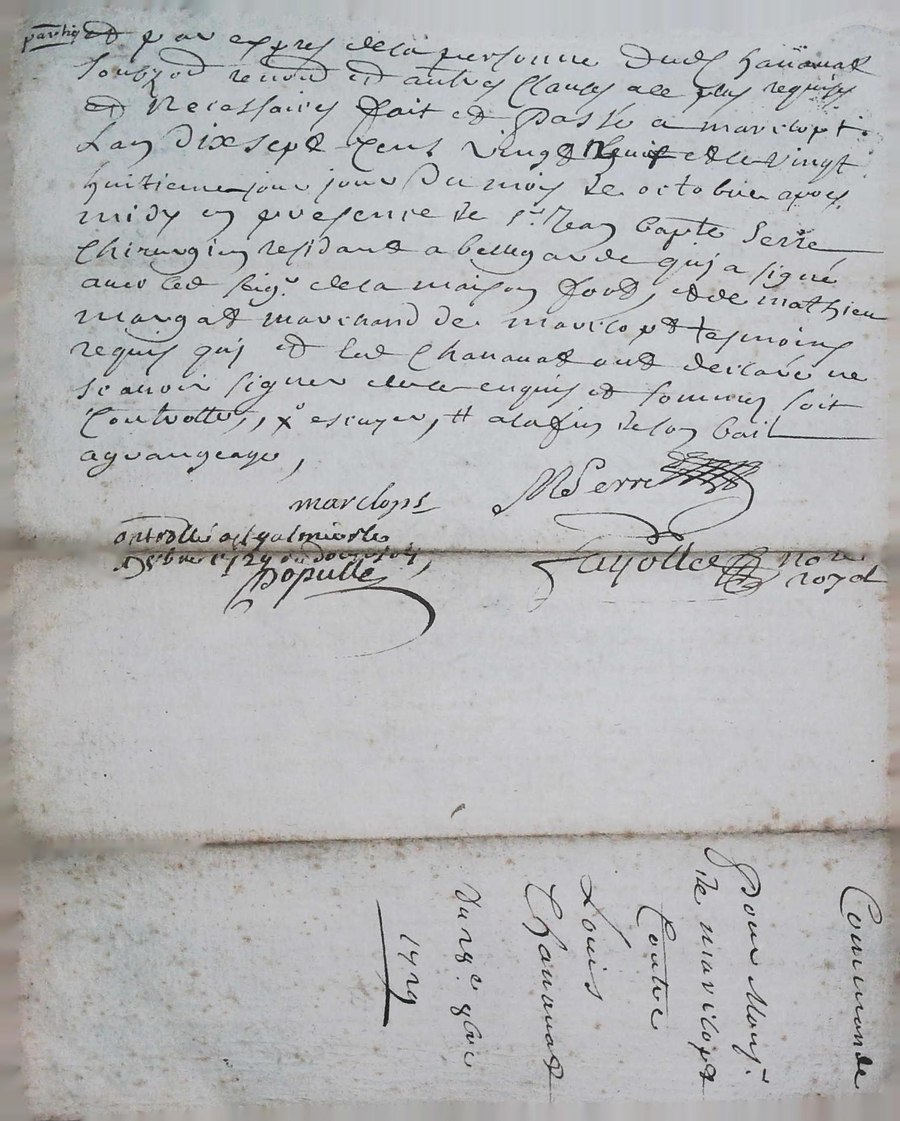 et par expres de la personne dud Chanavat
et autres clauses a ce plus requises
et necessaires fait et passé a marclopt
Lan dix sept cens vingt neuf et le vingt
huitieme jour jour du mois de octobre apres
midy en presence de sr. Jean bapte serre
chirurgien residant a bellegarde quj a signé
avec led seigr. de la maison fort, et de mathieu
margat marchand de marclopt tesmoins
requis quj et led Chanavat ont declaré ne
scavoir signer de ce enquis et sommes soit
Controllé, x escuyer, # a la fin de son bail
a grangeage,
marclopt
MSerre
Controllé a st galmier le
1729
Populle
Fayolle no re
royal
Commande
pour Monsr.
de marclopt
Contre
Louis
Chanavat
du 28e 8bre
1729